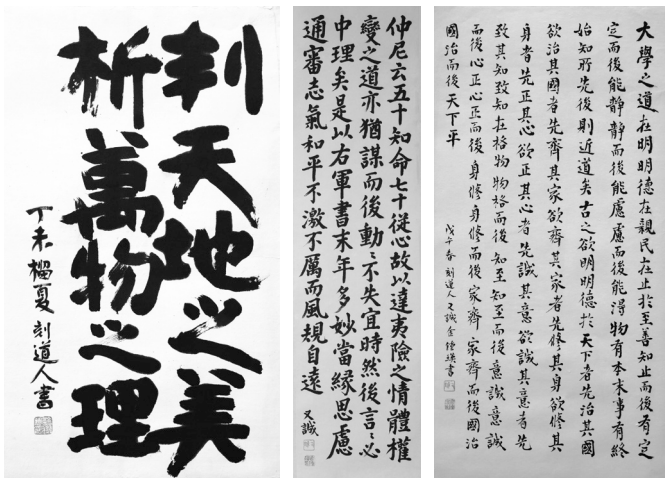 判天地之美
析萬物之理
丁未榴夏 刻道人書
仲尼云五十知命七十從心故以達夷險之情體權
變之道亦猶謀而後動〻不失宜時然後言〻必
中理矣是以右軍書末年多妙當緣思慮
通審志氣和平不激不厲而風規自遠 又誠
大學之道在明明德在親民在止於至善知止而後有定
定而後能静静而後能慮慮而後能得物有本末事有終
始知所先後則近道矣古之欲明明德於天下者先治其國
欲治其國者先齊其家欲齊其家者先修其身欲修其
身者先正其心欲正其心者先誠其意欲誠其意者先
致其知致知在格物物格而後知至知至而後意誠意誠
而後心正心正而後身修身修而後家齊家齊而後國治
國治而後天下平 戊午春 刻道人又誠金鍾書